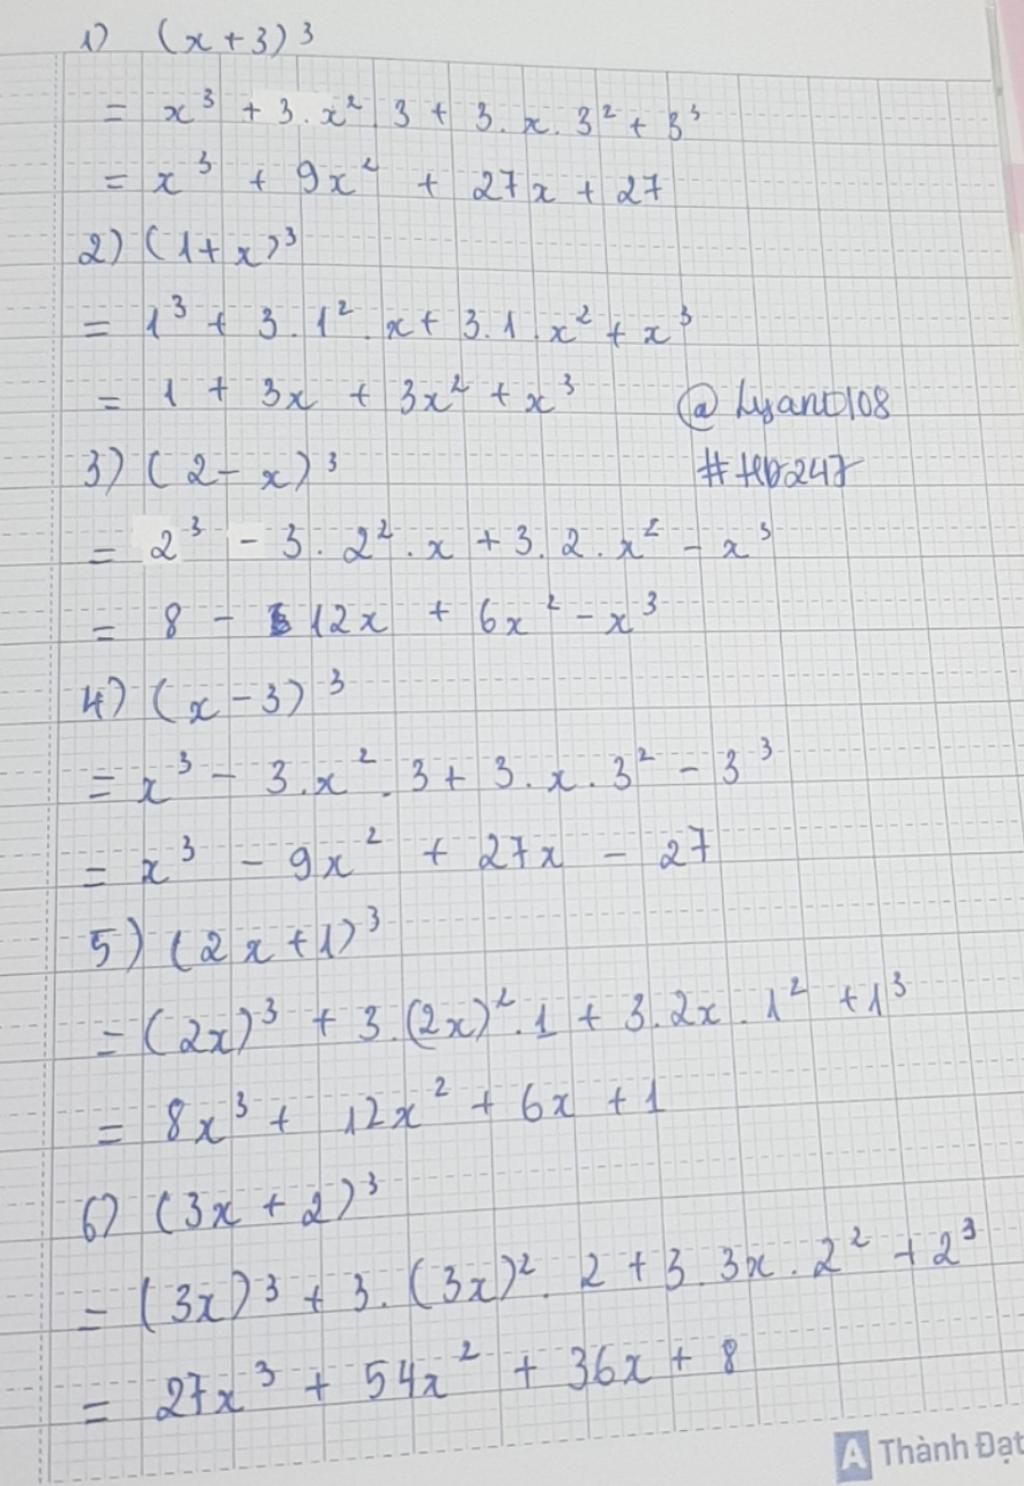 1) (x+3)³
= x³ + 3.x².3 + 3.x.3² + 3³
= x³ + 9x² + 27x + 27
2) (1+x)³
= 1³ + 3.1².x + 3.1.x² + x³
= 1 + 3x + 3x² + x³
@Lyant0108
3) (2-x)³
#HD247
= 2³ - 3.2².x + 3.2.x² - x³
= 8 - 12x + 6x² - x³
4) (x-3)³
= x³ - 3.x².3 + 3.x.3² - 3³
= x³ - 9x² + 27x - 27
5) (2x+1)³
= (2x)³ + 3.(2x)².1 + 3.2x.1² + 1³
= 8x³ + 12x² + 6x + 1
6) (3x+2)³
= (3x)³ + 3.(3x)².2 + 3.3x.2² + 2³
= 27x³ + 54x² + 36x + 8
A Thành Đạt